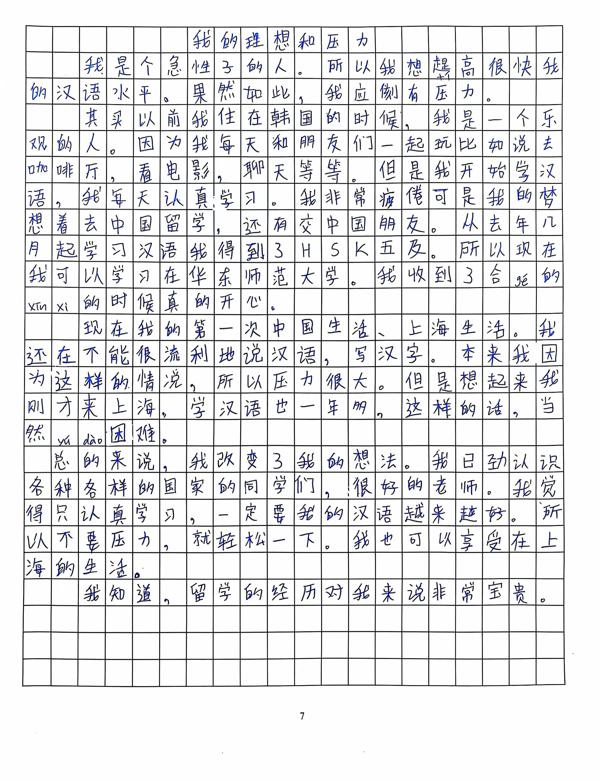 我的理想和压力
我是个急性子的人。所以我想趕高很快我
的汉语水平。果然如此，我应倒有压力。
其买以前我住在韩国的时候，我是一个乐
观的人。因为我每天和朋友们一起玩比如说去
咖啡厅，看电影，聊天等等。但是我开始学汉
语，我每天认真学习。我非常疲倦可是我的梦
想着去中国留学，还有交中国朋友。从去年几
月起学习汉语我得到了HSK五及。所以现在
我可以学习在华东师范大学。我收到了合gé的
xìn xi 的时候真的开心。
现在我的第一次中国生活、上海生活。我
还在不能很流利地说汉语，写汉字。本来我因
为这样的情说，所以压力很大。但是想起来我
刚才来上海，学汉语也一年多，这样的话，当
然 xué dào 困难。
总的来说，我改变了我的想法。我已劲认识
各种各样的国家的同学们，很好的老师。我觉
得只认真学习，一定要我的汉语越来越好。所
以不要压力，就轻松一下。我也可以享受在上
海的生活。
我知道，留学的经历对我来说非常宝贵。
7